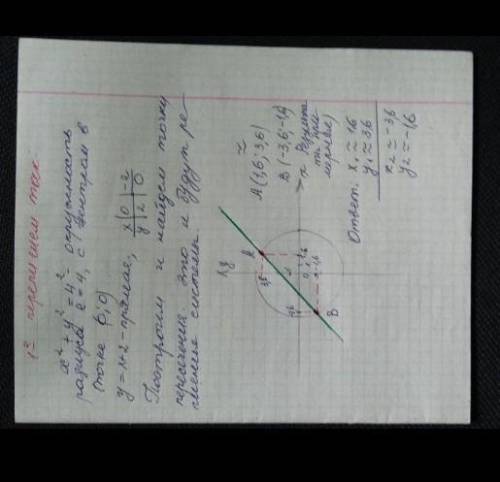 x² + y² = 4² - окружность
радиуса r = 4, с центром в
точке (0; 0)
y = x+2 - прямая,
x | 0 | -2
y | 2 | 0
Построим и найдем точку
пересечения. Это и будут ре-
шения системы.
y
A
3,6
2
B
x
≈
A (1,6; 3,6)
B (-3,6; -1,6)
Ответ: x₁ ≈ 1,6
y₁ ≈ 3,6
x₂ ≈ -3,6
y₂ ≈ -1,6